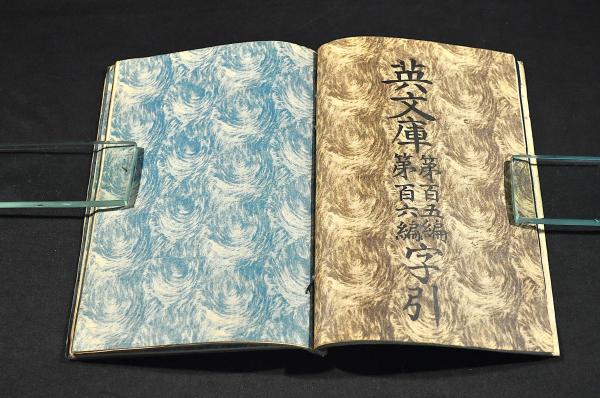 英文庫
第百五編
第百六編
字引